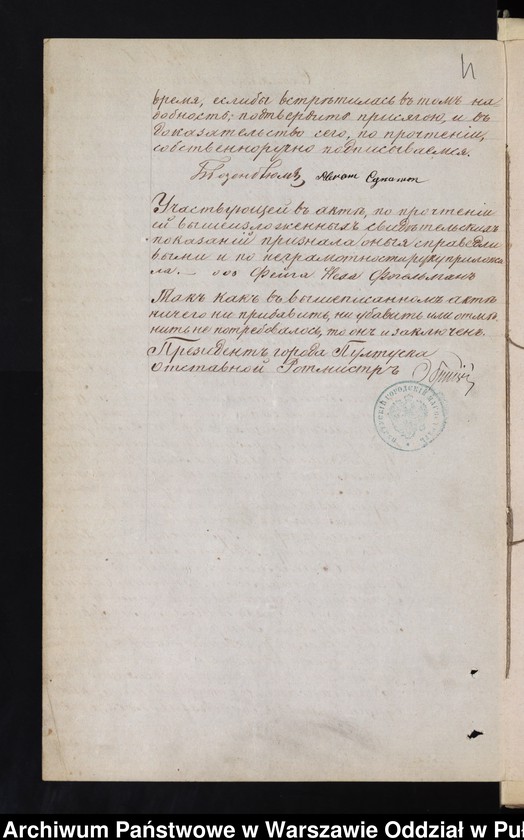 время, еслибы встрѣтилась въ томъ на
добность; подтвердить присягою, и въ
доказательство сего, по прочтеніи,
собственноручно подписываемся.
Участвующей въ актѣ, по прочтеніи
ей вышеизложенныхъ свидѣтельскихъ
показаній признала оныя справедли
выми и по неграмотности руку приложи
ла. — ооо Фейга
Такъ какъ въ вышеписанномъ актѣ
ничего ни прибавить, ни убавить или отмѣ
нить не потребовалось, то онъ и заключенъ.
Президентъ города Пултуска
Отставной Ротмистръ
Archiwum Państwowe w Warszawie Oddział w Pu